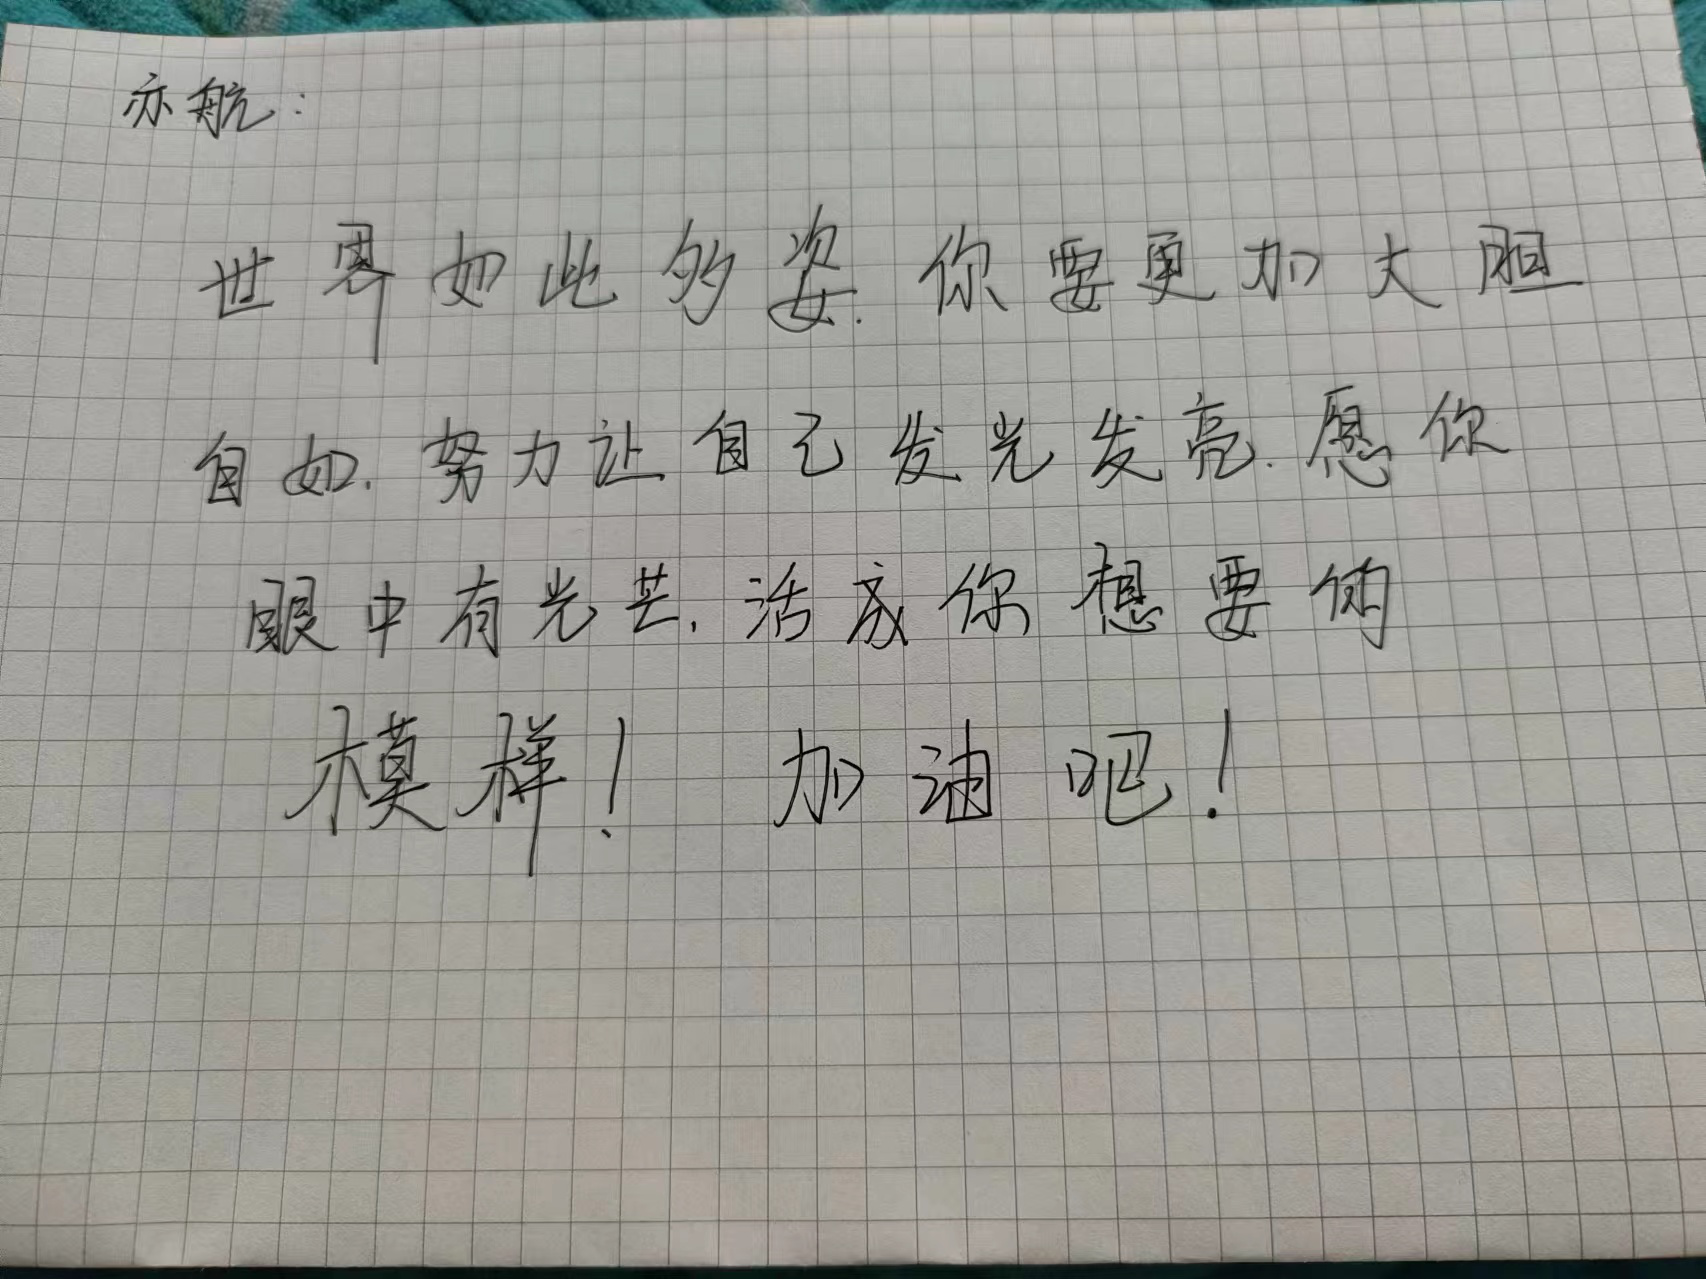 亦航：
世界如此多姿.你要更加大胆
自如.努力让自己发光发亮.愿你
眼中有光芒.活成你想要的
模样！加油吧！